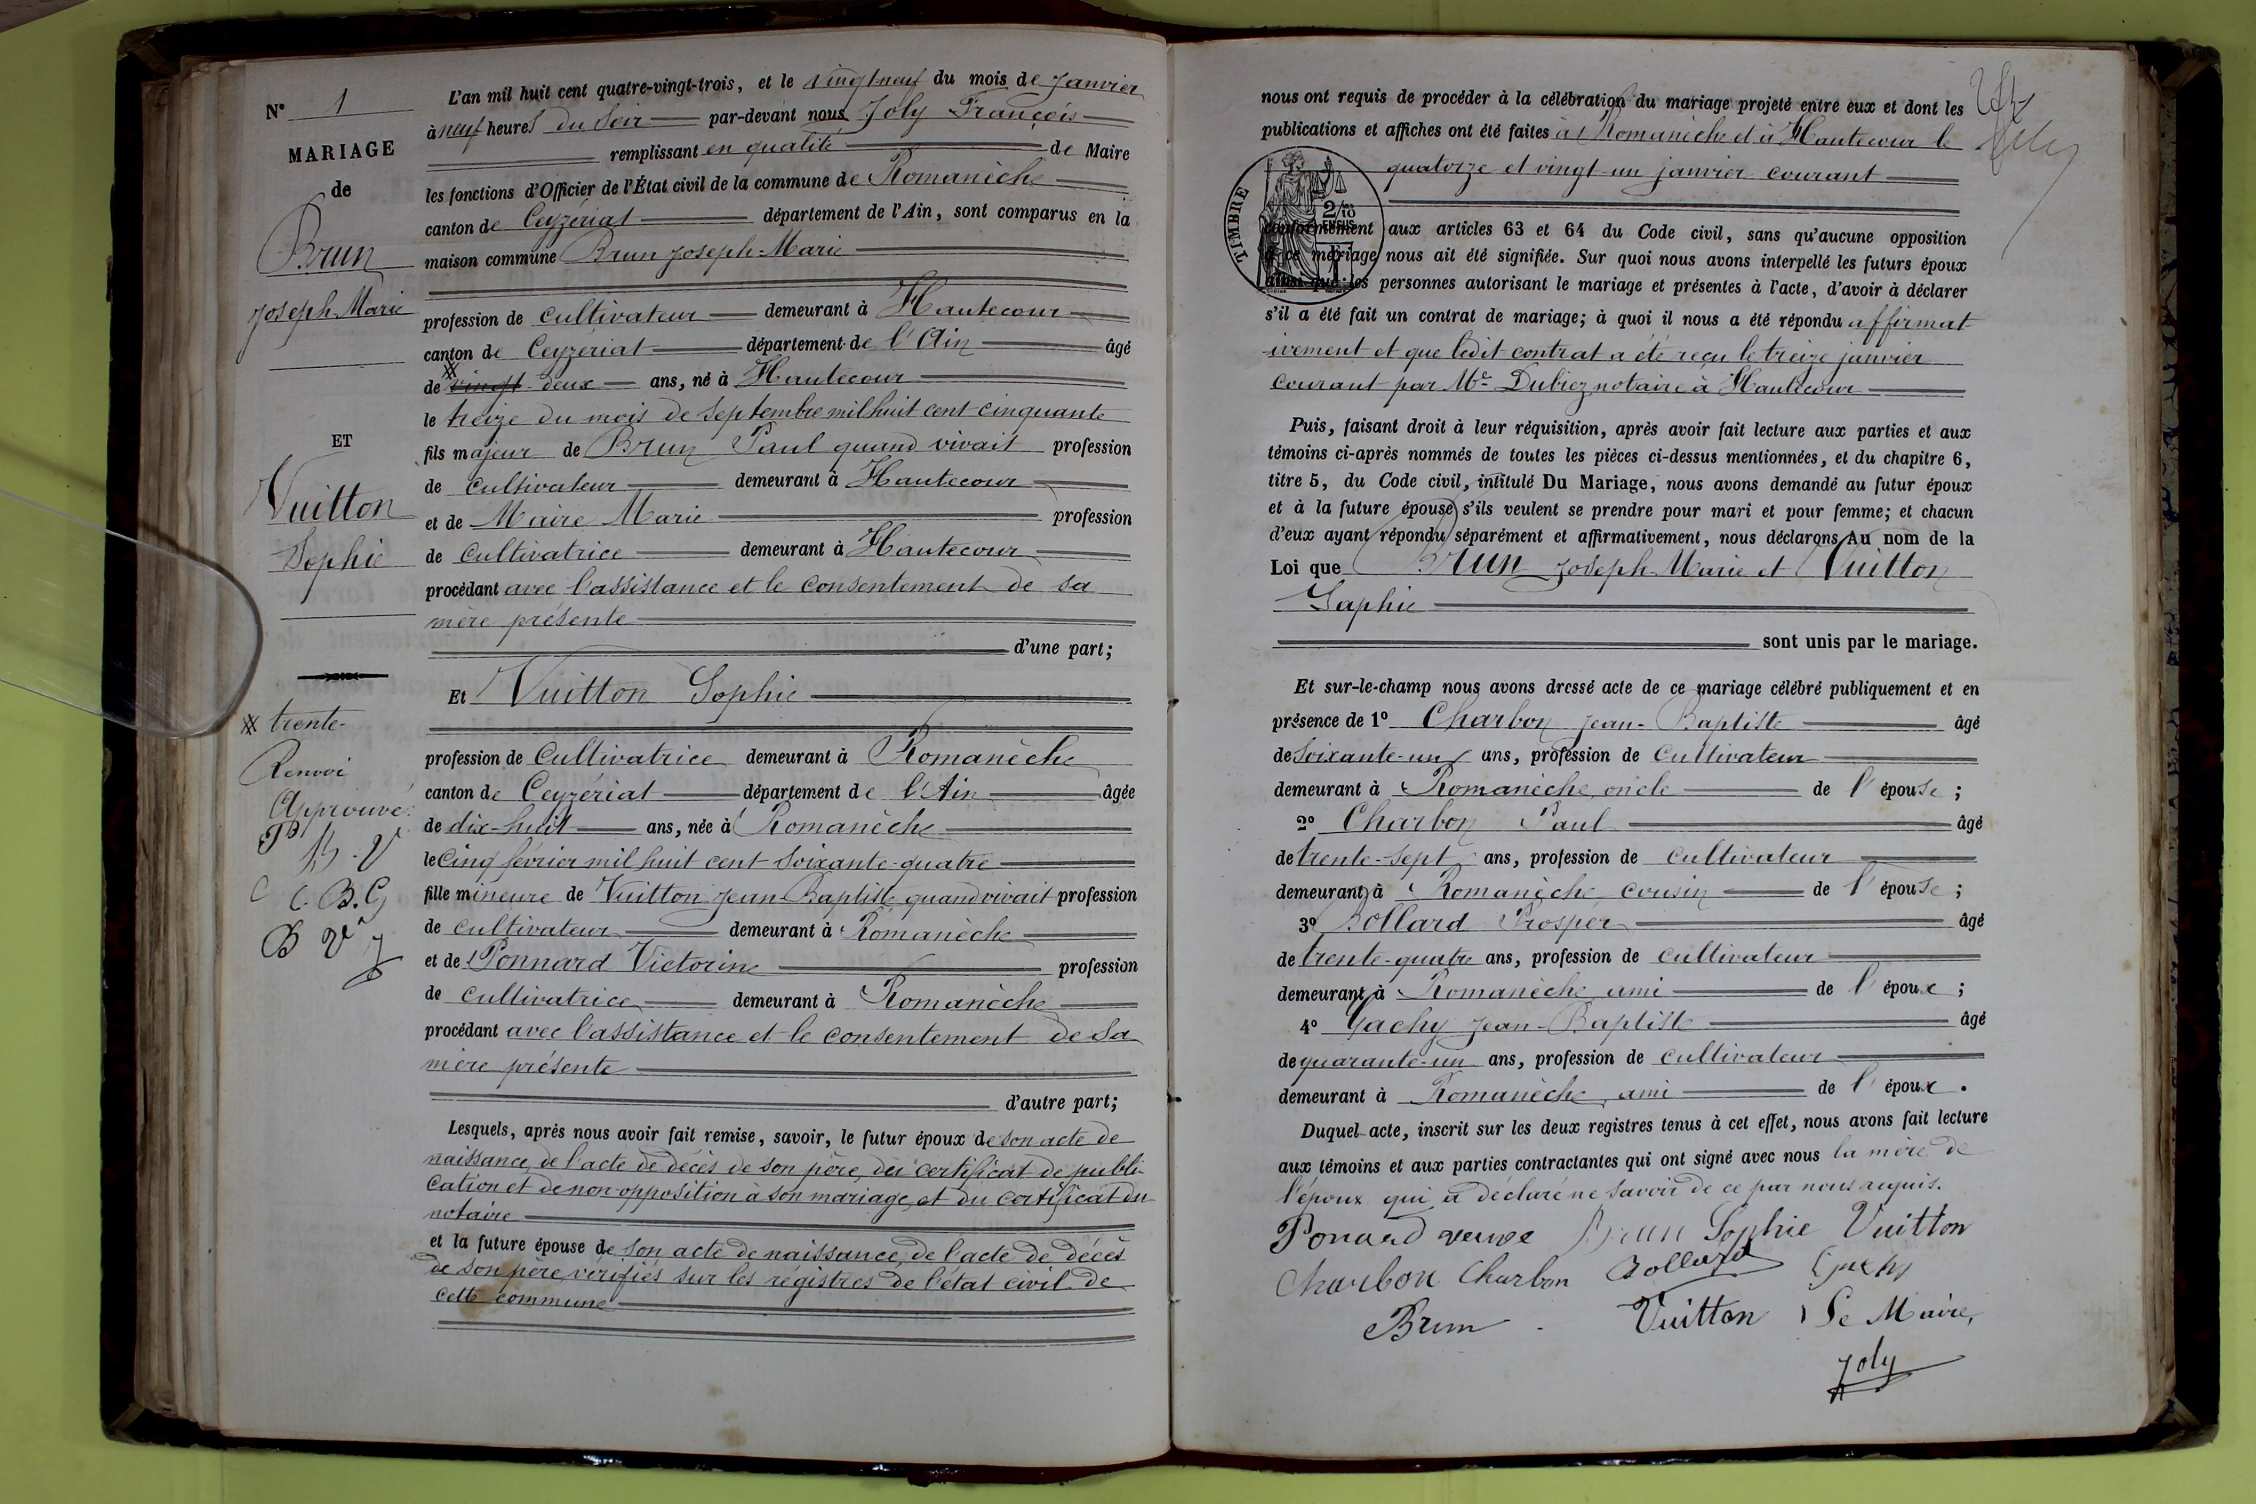 N° 1
MARIAGE
de
Brun
Joseph Marie
ET
Vuitton
Sophie
⁂ trente-
Renvoi
Approuvé
P B. V
C C. B. G
B Vᵉ J
L'an mil huit cent quatre-vingt-trois, et le vingt-neuf du mois de Janvier
à neuf heures du Soir par-devant nous Joly François
remplissant en qualité de Maire
les fonctions d'Officier de l'État civil de la commune de Romanèche
canton de Ceyzériat département de l'Ain, sont comparus en la
maison commune Brun Joseph-Marie
profession de cultivateur demeurant à Hautecour
canton de Ceyzériat département de l'Ain âgé
de vingt deux ans, né à Hautecour
le treize du mois de Septembre mil huit cent cinquante
fils majeur de Brun Paul quand vivait profession
de cultivateur demeurant à Hautecour
et de Maire Marie profession
de cultivatrice demeurant à Hautecour
procédant avec l'assistance et le consentement de sa
mère présente
d'une part;
Et Vuitton Sophie
profession de Cultivatrice demeurant à Romanèche
canton de Ceyzériat département de l'Ain âgée
de dix-huit ans, née à Romanèche
le Cinq février mil huit cent soixante-quatre
fille mineure de Vuitton Jean-Baptiste quand vivait profession
de cultivateur demeurant à Romanèche
et de Ponnard Victorine profession
de cultivatrice demeurant à Romanèche
procédant avec l'assistance et le consentement de sa
mère présente
d'autre part;
Lesquels, après nous avoir fait remise, savoir, le futur époux de son acte de
naissance, de l'acte de décès de son père, du certificat de publi-
cation et de non-opposition à son mariage, et du certificat du
notaire
et la future épouse de son acte de naissance, de l'acte de décès
de son père vérifiés sur les régistres de l'état civil de
cette commune
nous ont requis de procéder à la célébration du mariage projeté entre eux et dont les
publications et affiches ont été faites à Romanèche et à Hautecour le
quatorze et vingt-un janvier courant
TIMBRE
2/10
EN SUS
conformément aux articles 63 et 64 du Code civil, sans qu'aucune opposition
à ce mariage nous ait été signifiée. Sur quoi nous avons interpellé les futurs époux
ainsi que les personnes autorisant le mariage et présentes à l'acte, d'avoir à déclarer
s'il a été fait un contrat de mariage; à quoi il nous a été répondu affirmat-
ivement et que ledit contrat a été reçu le treize janvier
courant par Mᵉ Dubiez notaire à Hautecour
Puis, faisant droit à leur réquisition, après avoir fait lecture aux parties et aux
témoins ci-après nommés de toutes les pièces ci-dessus mentionnées, et du chapitre 6,
titre 5, du Code civil, intitulé Du Mariage, nous avons demandé au futur époux
et à la future épouse s'ils veulent se prendre pour mari et pour femme; et chacun
d'eux ayant répondu séparément et affirmativement, nous déclarons Au nom de la
Loi que Brun Joseph Marie et Vuitton
Sophie
sont unis par le mariage.
Et sur-le-champ nous avons dressé acte de ce mariage célébré publiquement et en
présence de 1° Charbon Jean-Baptiste âgé
de soixante-un ans, profession de Cultivateur
demeurant à Romanèche, oncle de l'épouse;
2° Charbon Paul âgé
de trente-sept ans, profession de cultivateur
demeurant à Romanèche cousin de l'épouse;
3° Bollard Prosper âgé
de trente-quatre ans, profession de cultivateur
demeurant à Romanèche ami de l'époux;
4° Gachy Jean-Baptiste âgé
de quarante-un ans, profession de cultivateur
demeurant à Romanèche, ami de l'époux.
Duquel acte, inscrit sur les deux registres tenus à cet effet, nous avons fait lecture
aux témoins et aux parties contractantes qui ont signé avec nous la mère de
l'époux qui a déclaré ne savoir de ce par nous requis.
Ponard veuve Brun Sophie Vuitton
Charbon Charbon Bollard Gachy
Brun Vuitton Le Maire,
Joly